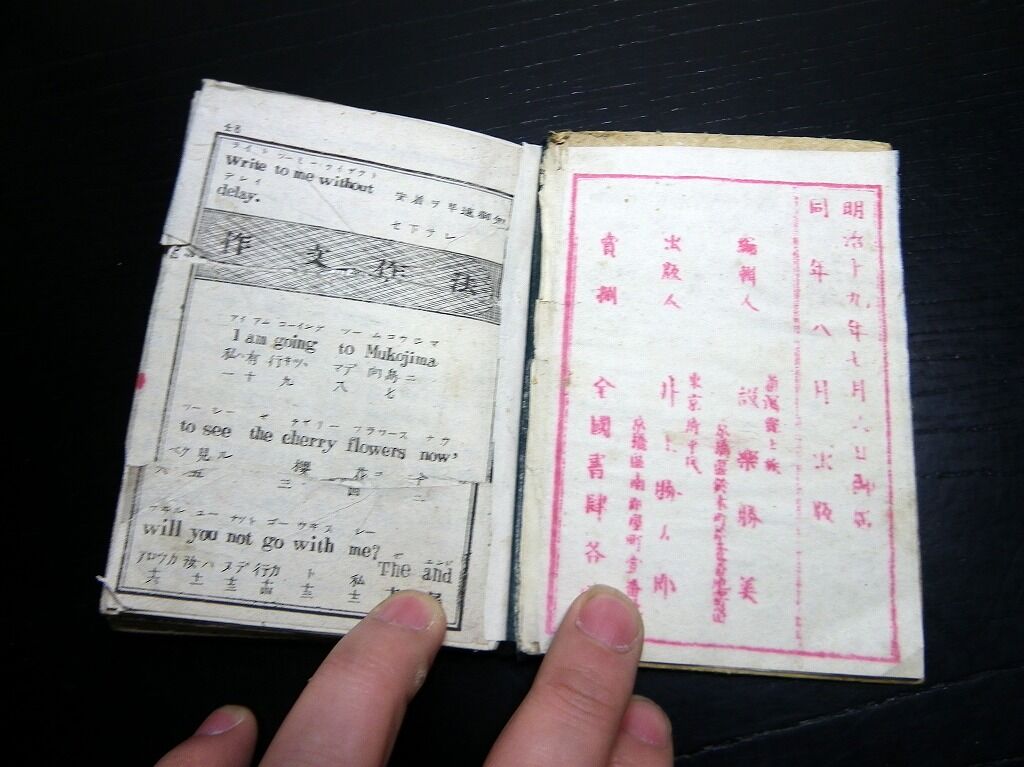 ライト ツー ミー ウイザウト
Write to me without
安着ヲ早速御知
デレイ
delay.
セ下サレ
作文作法
アイ アム ゴーイング ツー ムコウジマ
I am going to Mukojima
私ハ 有 行キツヽ マデ 向島ニ
一 十 九 八 七
ツー シー ゼ チイリー フラワース ナウ
to see the cherry flowers now,
見ル 櫻 花ヲ 今
六 五 三 四 二
ウイル ユー ナツト ゴー ウヰズ ミー
will you not go with me?
アロウカ 汝ハ ヌデ 行カ ト 私
ゼ エンド
The and
明治十九年七月六日御届
同年八月出版
編輯人 設樂勝美
東京府平民
出版人 井上勝五郎
賣捌 全國書肆各